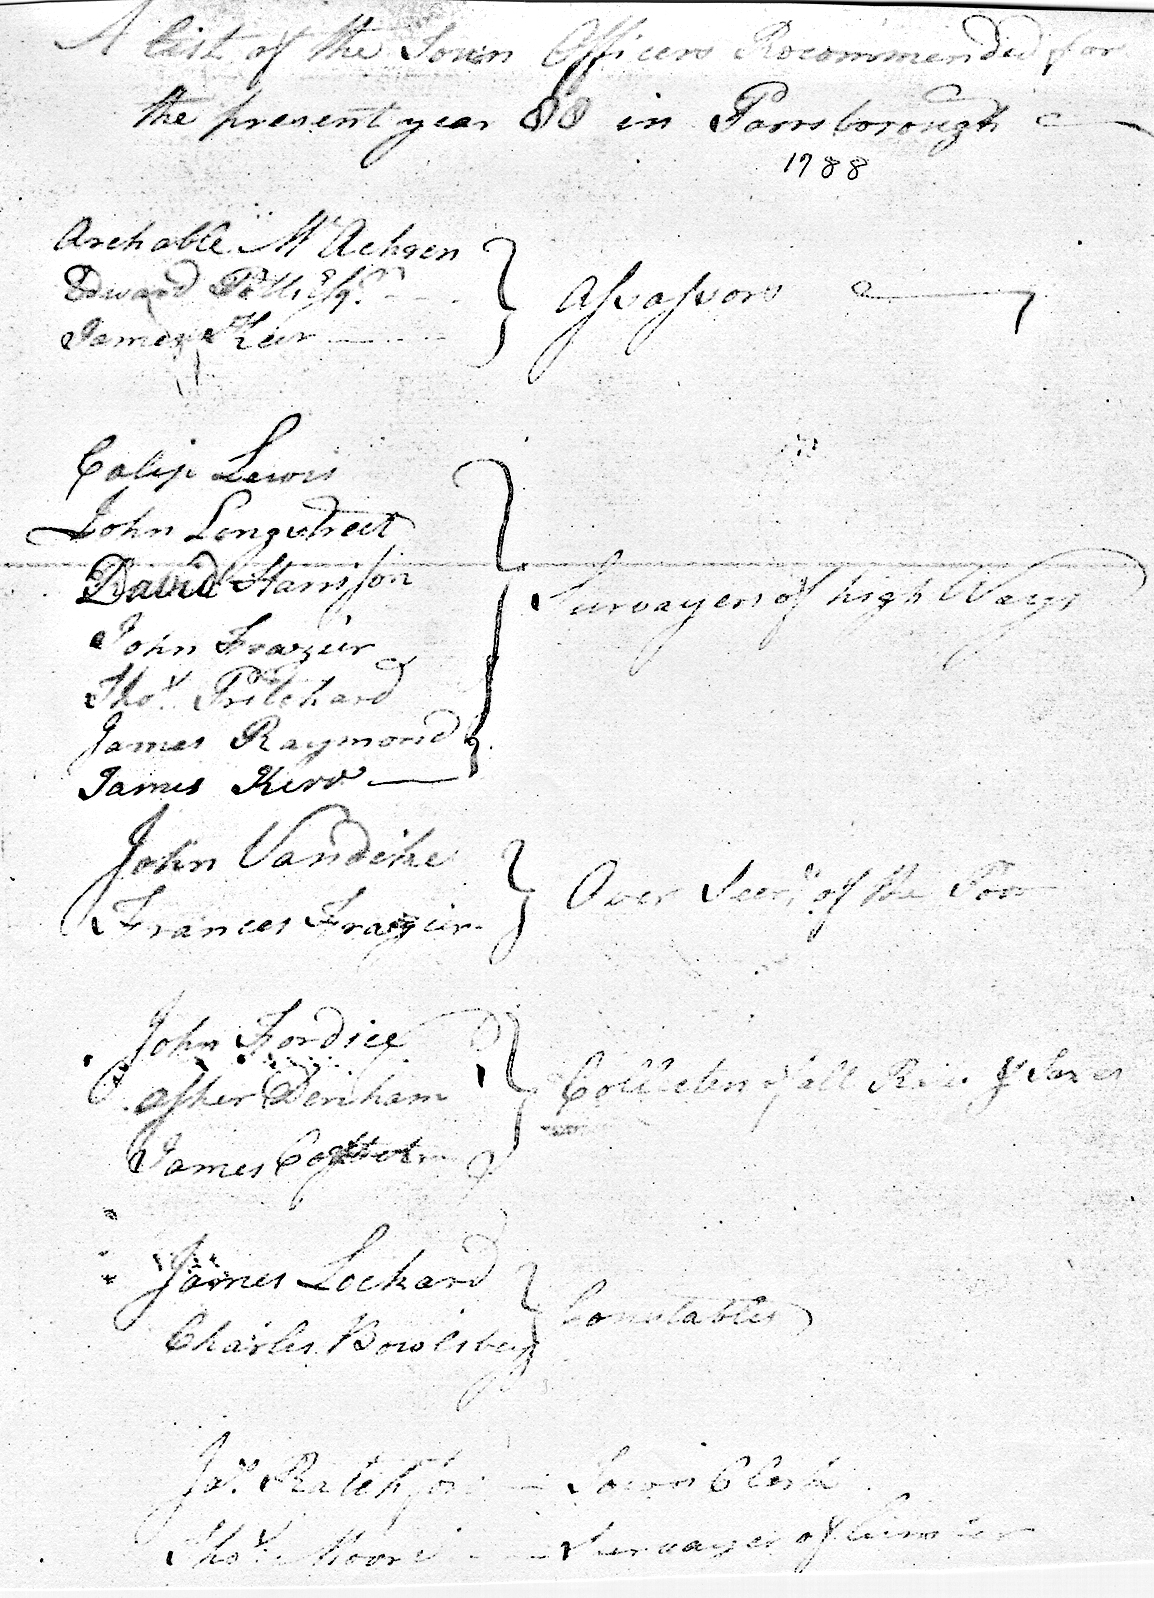 A list of the Town Officers Recommended for
the present year 88 in Parrsborough
1788
Archable McAchren
Edward Potts Esqr
James Kerr
Assassors
Calip Lewis
John Longstreet
David Stamson
John Frazier
Thos. Pritchard
James Raymond
James Kerr
Survayers of high Ways
John Vandike
Frances Frazier
Over Seers of the Poor
John Fordice
asher Denham
James
Collecters of all Rates & Taxes
James Lockard
Charles Bowlsbey
Constables
Jas. Ratchford Town Clerk
Thos. Moore Survayer of